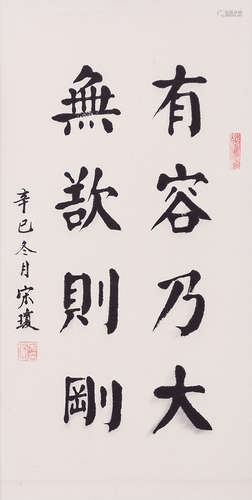 有容乃大
無欲則剛
辛巳冬月宋瓊